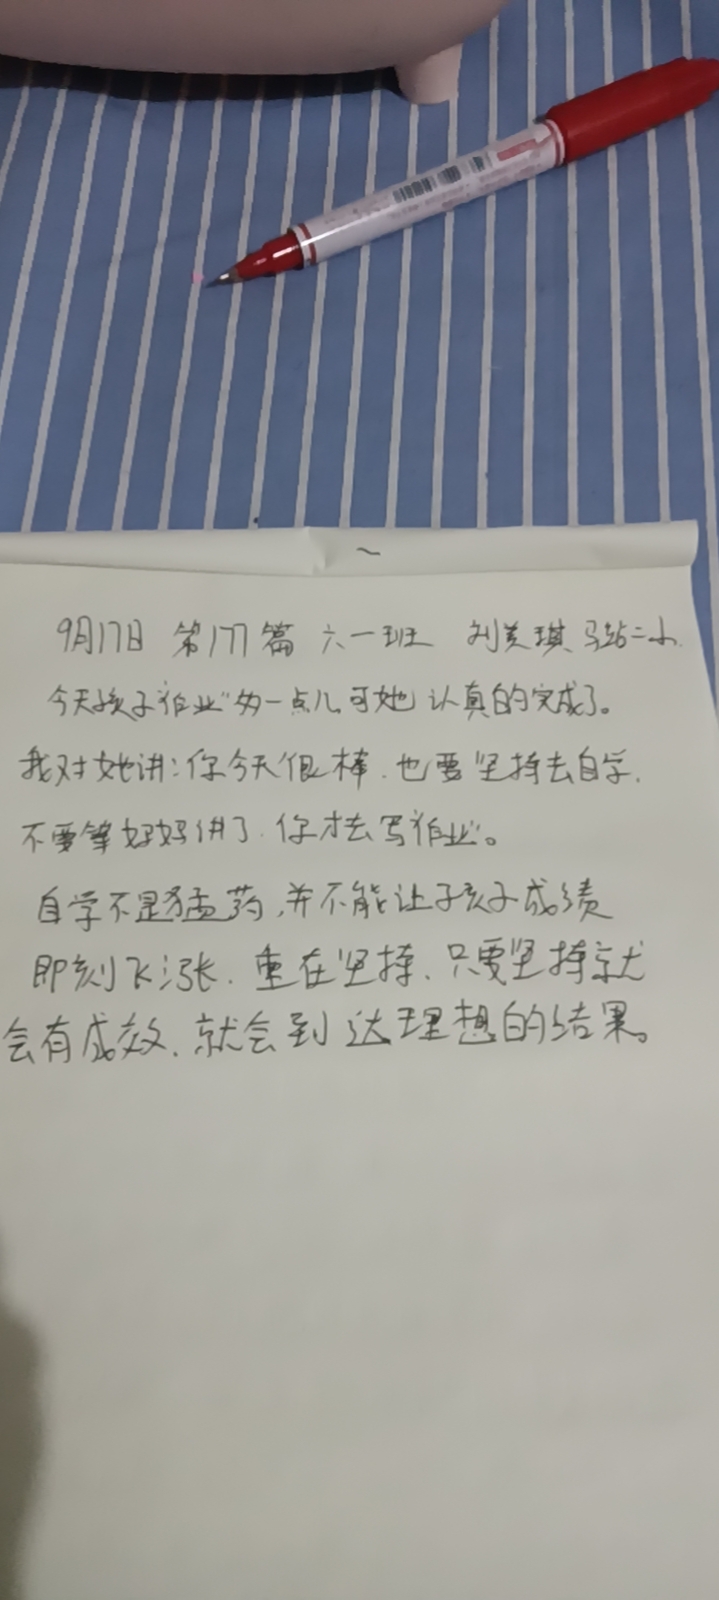 9月17日 第177篇 六一班 刘美琪 马站二小
今天孩子作业多一点儿可她认真的完成了。
我对她讲:你今天很棒.也要坚持去自学.
不要等妈妈讲了.你才去写作业。
自学不是猛药,并不能让孩子成绩
即刻飞涨.重在坚持.只要坚持就
会有成效.就会到达理想的结果。